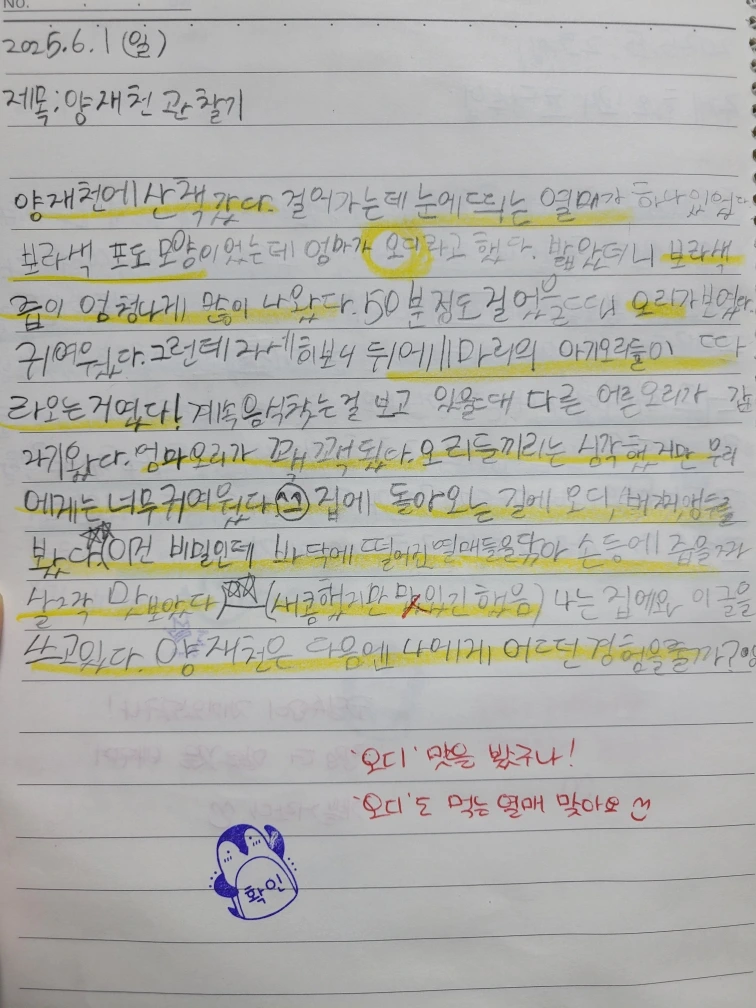 No.
2025.6.1(일)
제목:양재천 관찰기
양재천에 산책갔다. 걸어가는데 눈에띄는 열매가 하나있었다
보라색 포도 모양이었는데 엄마가 오디라고 했다. 밟았더니 보라색
즙이 엄청나게 많이 나왔다. 50분정도 걸었을때 오리가보였다.
귀여웠다. 그런데 자세히보니 뒤에 11마리의 아기오리들이 따
라오는거였다! 계속음식찾는걸 보고 있을대 다른 어른오리가 갑
자기왔다. 엄마오리가 꽥꽥됬다. 오리들끼리는 심각했지만 우리
에게는 너무 귀여웠다 ^^ 집에 돌아오는 길에 오디, 버찌, 앵두를
봤다 (이건 비밀인데 바닥에 떨어진 열매들을 손등에 즙을 짜
살그락 맛보았다) (새콤했지만 맛있긴 했음) 나는 집에와 이글을
쓰고있다. 양재천은 다음엔 나에게 어떤 경험을줄까?
오디. 맛을 봤구나!
오디.도 먹는 열매 맞아요
확인